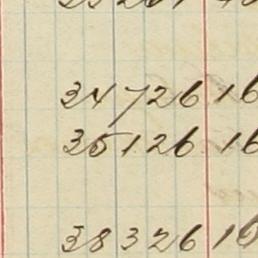 34726 16
35126 16
38326 16